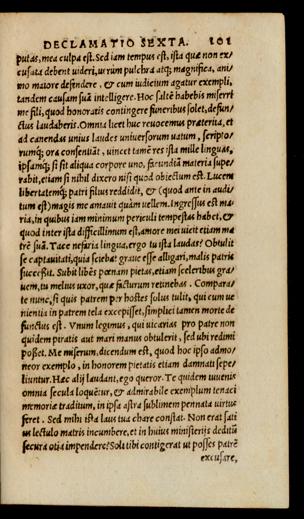 DECLAMATIO SEXTA. 101
putas, mea culpa est. Sed iam tempus est, ista quæ non ex⸗
cusata debent uideri, uerùm pulchra atq; magnifica, ani⸗
mo maiore defendere, & cum iudicium agatur exempli,
tandem causam suã intelligere. Hoc saltẽ habebis miserri
me fili, quod honoratis contingere funeribus solet, defun⸗
ctus laudaberis. Omnia licet huc reuocemus præterita, et
ad canendas unius laudes uniuersorum uatum, scripto⸗
rumq; ora consentiãt, uincet tamẽ res ista mille linguas,
ipsamq; si sit aliqua corpore uno, facundiã materia supe⸗
rabit, etiam si nihil dixero nisi quod obiectum est. Lucem
libertatemq; patri filius reddidit, & (quod ante in audi⸗
tum est) magis me amauit quàm uellem. Ingressus est ma⸗
ria, in quibus iam minimum periculi tempestas habet, &
quod inter ista difficillimum est, amore mei uicit etiam ma
trẽ suã. Tace nefaria lingua, ergo tu ista laudas? Obtulit
se captiuitati, quia sciebat graue esse alligari, malis patris
successit. Subit libẽs pœnam pietas, etiam sceleribus gra⸗
uem, tu melius uxor, quæ facturum retinebas. Compara⸗
te nunc, si quis patrem per hostes solus tulit, qui cum ue
nientia in patrem tela excepisset, simplici tamen morte de
functus est. Vnum legimus, qui uicarias pro patre non
quidem piratis aut mari manus obtulerit, sed ubi redimi
posset. Me miserum, dicendum est, quod hoc ipso admo⸗
neor exemplo, in honorem pietatis etiam damnati sepe⸗
liuntur. Hæc alij laudant, ego queror. Te quidem iuuenis
omnia secula loquẽtur, & admirabile exemplum tenaci
memoriæ traditum, in ipsa astra sublimem pennata uirtus
feret. Sed mihi ista laus tua chare constat. Non erat sati
us lectulo matris incumbere, et in huius ministerijs deditũ
secura otia impendere? Soli tibi contigerat ut posses patrẽ
excusare,